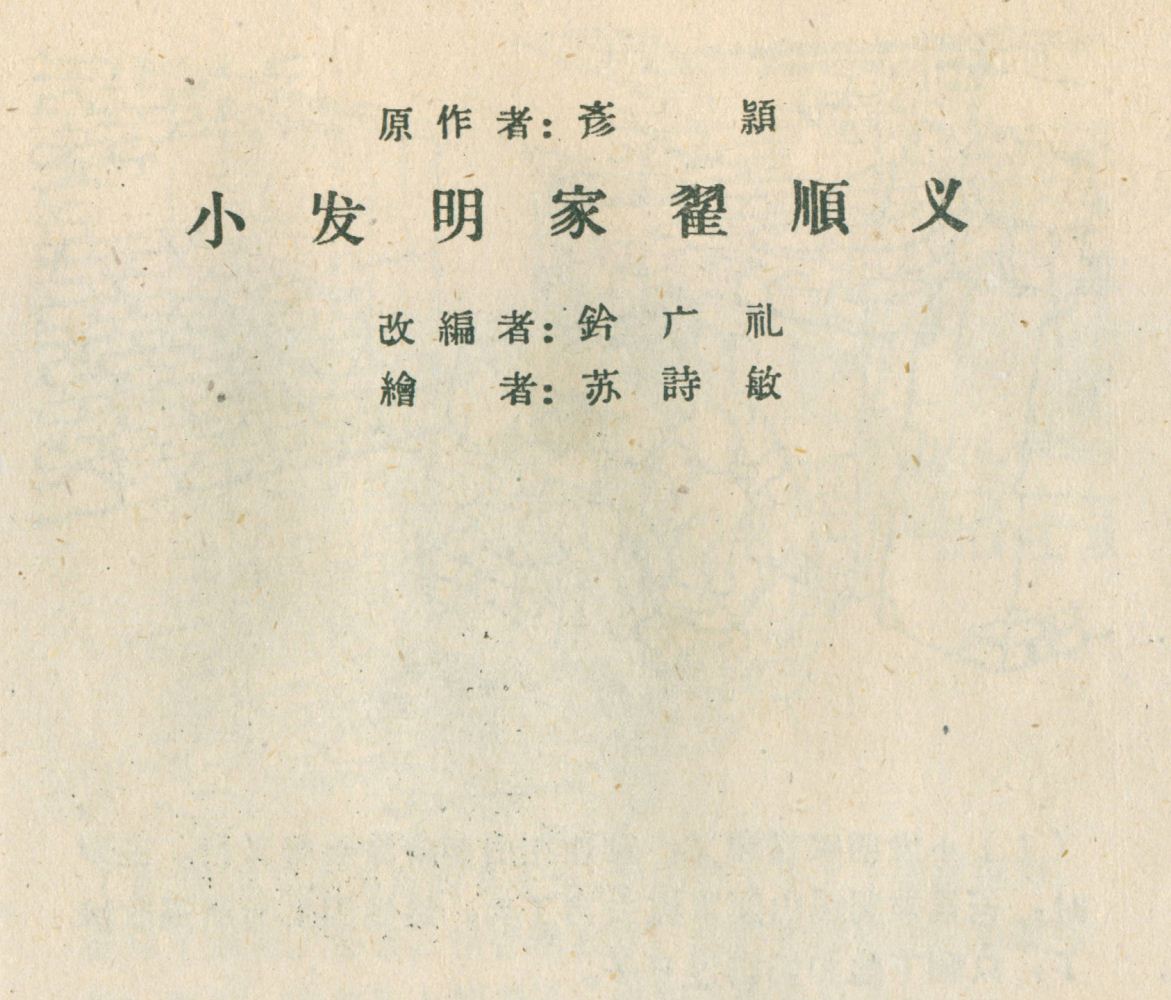 原作者：彥 穎
小发明家翟順义
改編者：鈐广礼
繪 者：苏詩敏